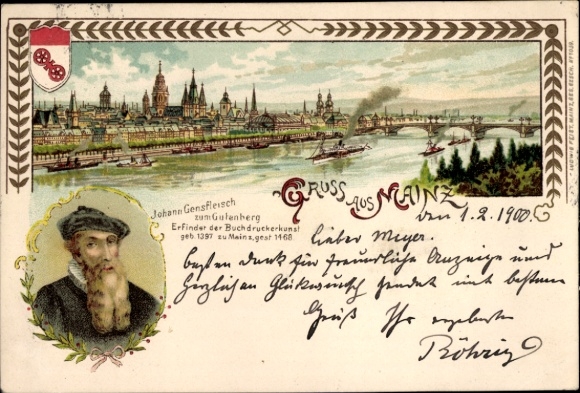 GRUSS AUS MAINZ
den 1.2.1900.
Johann Gensfleisch
zum Gutenberg
Erfinder der Buchdruckerkunst
geb. 1397 zu Mainz, gest 1468.
Lieber Meyer.
besten Dank für freundliche Anzeige und
herzlichen Glückwunsch sendet mit bestem
Gruß Ihr ergebenster
Röhrig